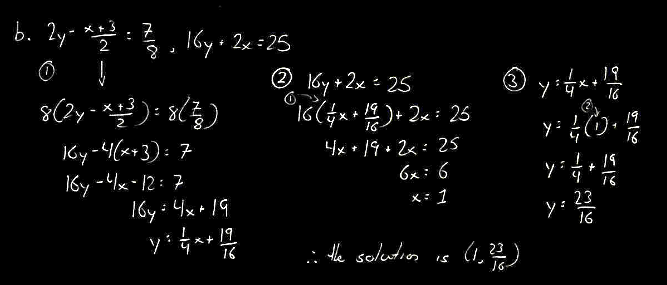 b. 2y - (x+3)/2 = 7/8, 16y + 2x = 25
①
8(2y - (x+3)/2) = 8(7/8)
16y - 4(x+3) = 7
16y - 4x - 12 = 7
16y = 4x + 19
y = 1/4 x + 19/16
② 16y + 2x = 25
① 16(1/4 x + 19/16) + 2x = 25
4x + 19 + 2x = 25
6x = 6
x = 1
③ y = 1/4 x + 19/16
②
y = 1/4 (1) + 19/16
y = 1/4 + 19/16
y = 23/16
∴ the solution is (1, 23/16)